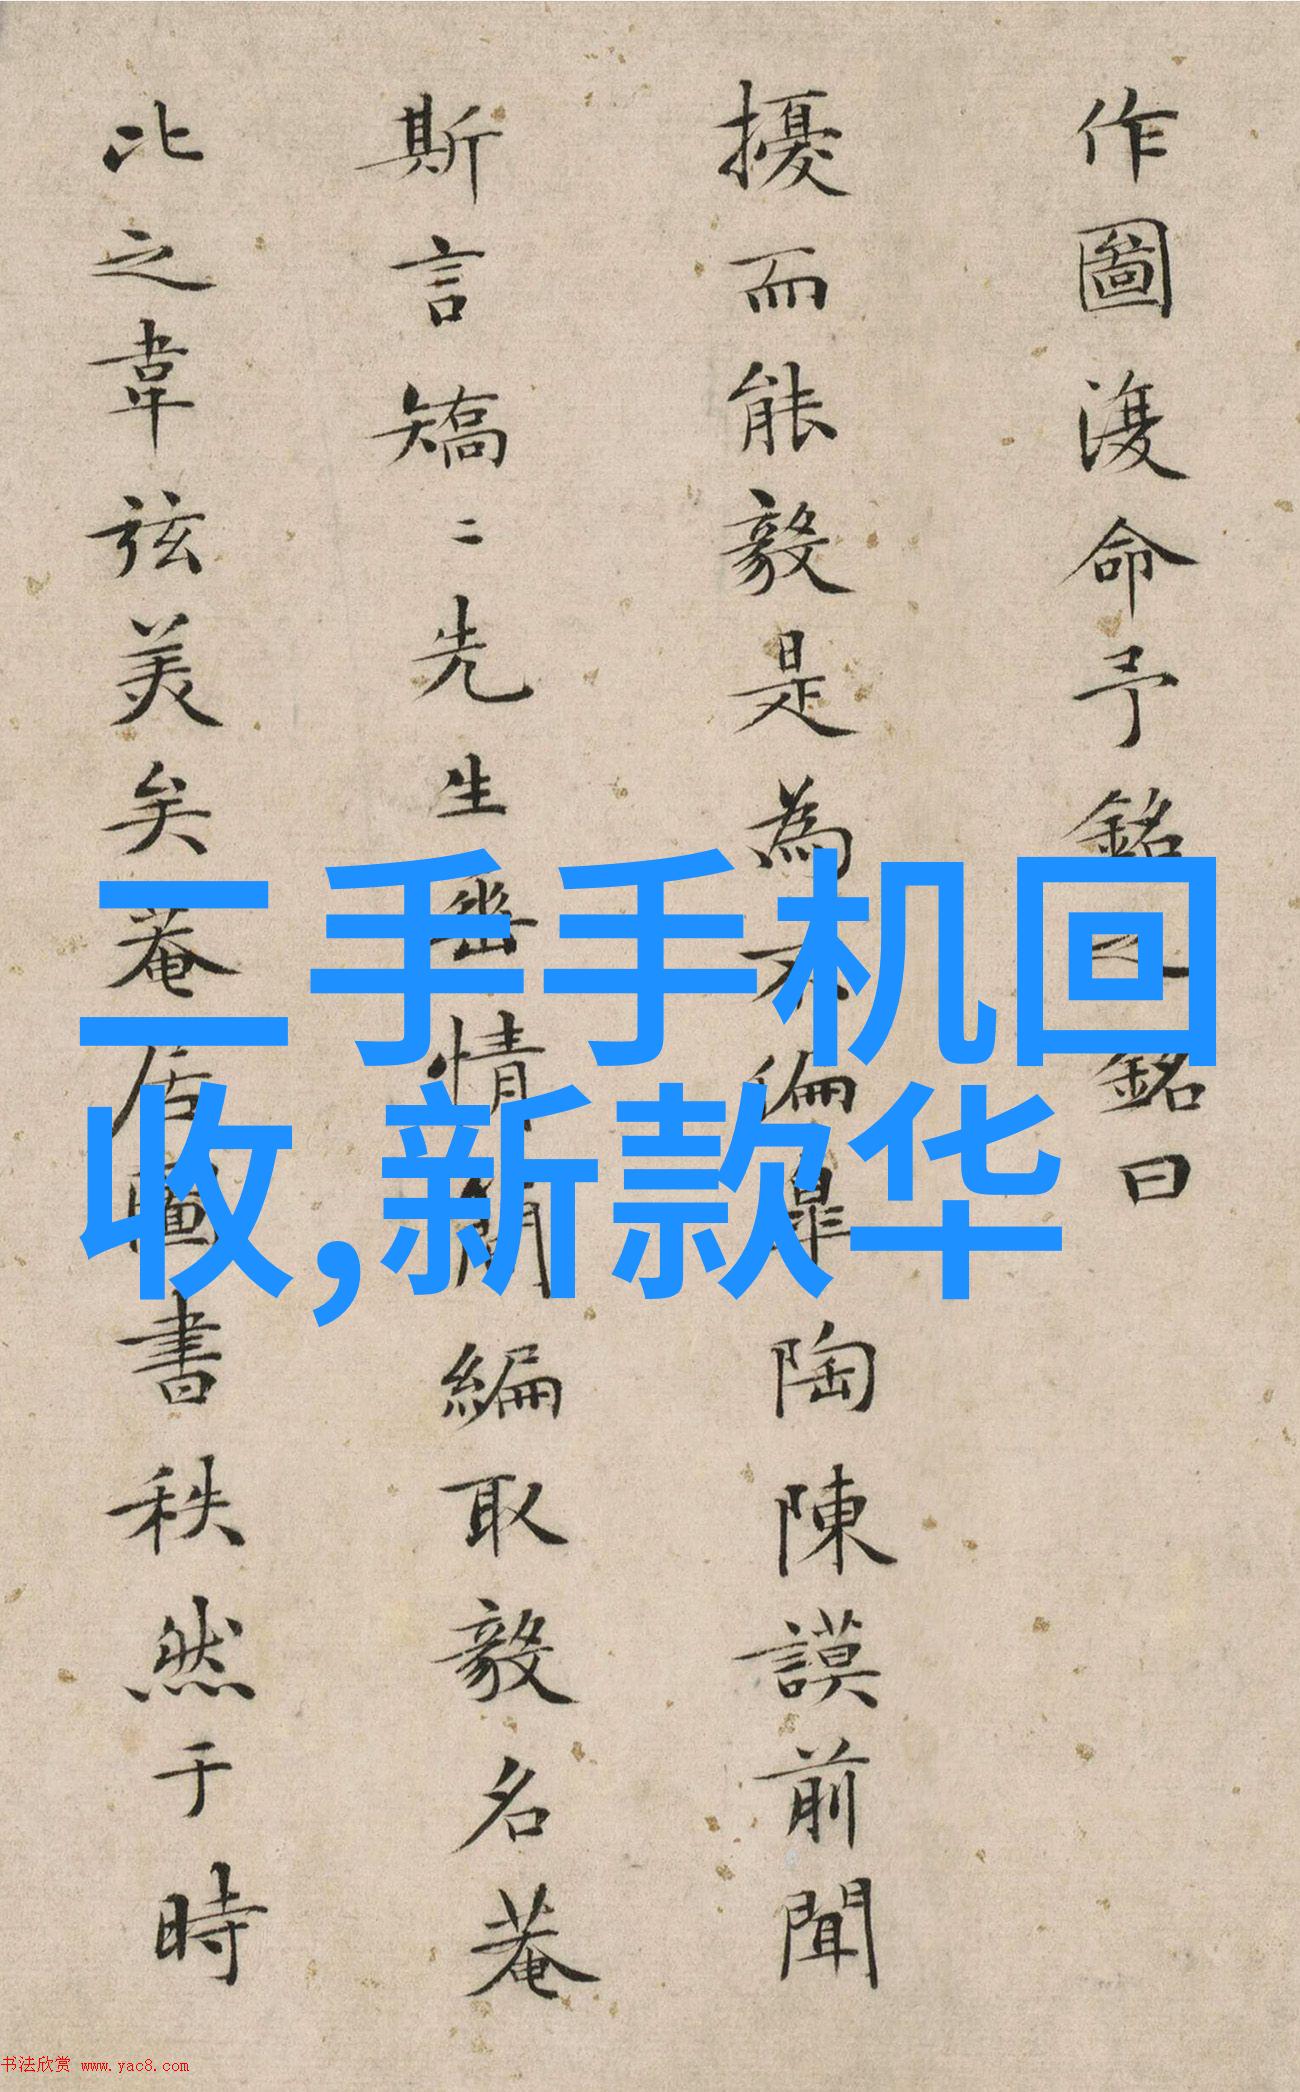 作圖復命予銘之銘曰
擾而能毅是為不偏皋陶陳謨前聞
斯言矯二先生情簡編取毅名菴
比之韋弦美矣菴居圖書秩然于時
二手手机回
收,新款华
书法欣赏 www.yac8.com